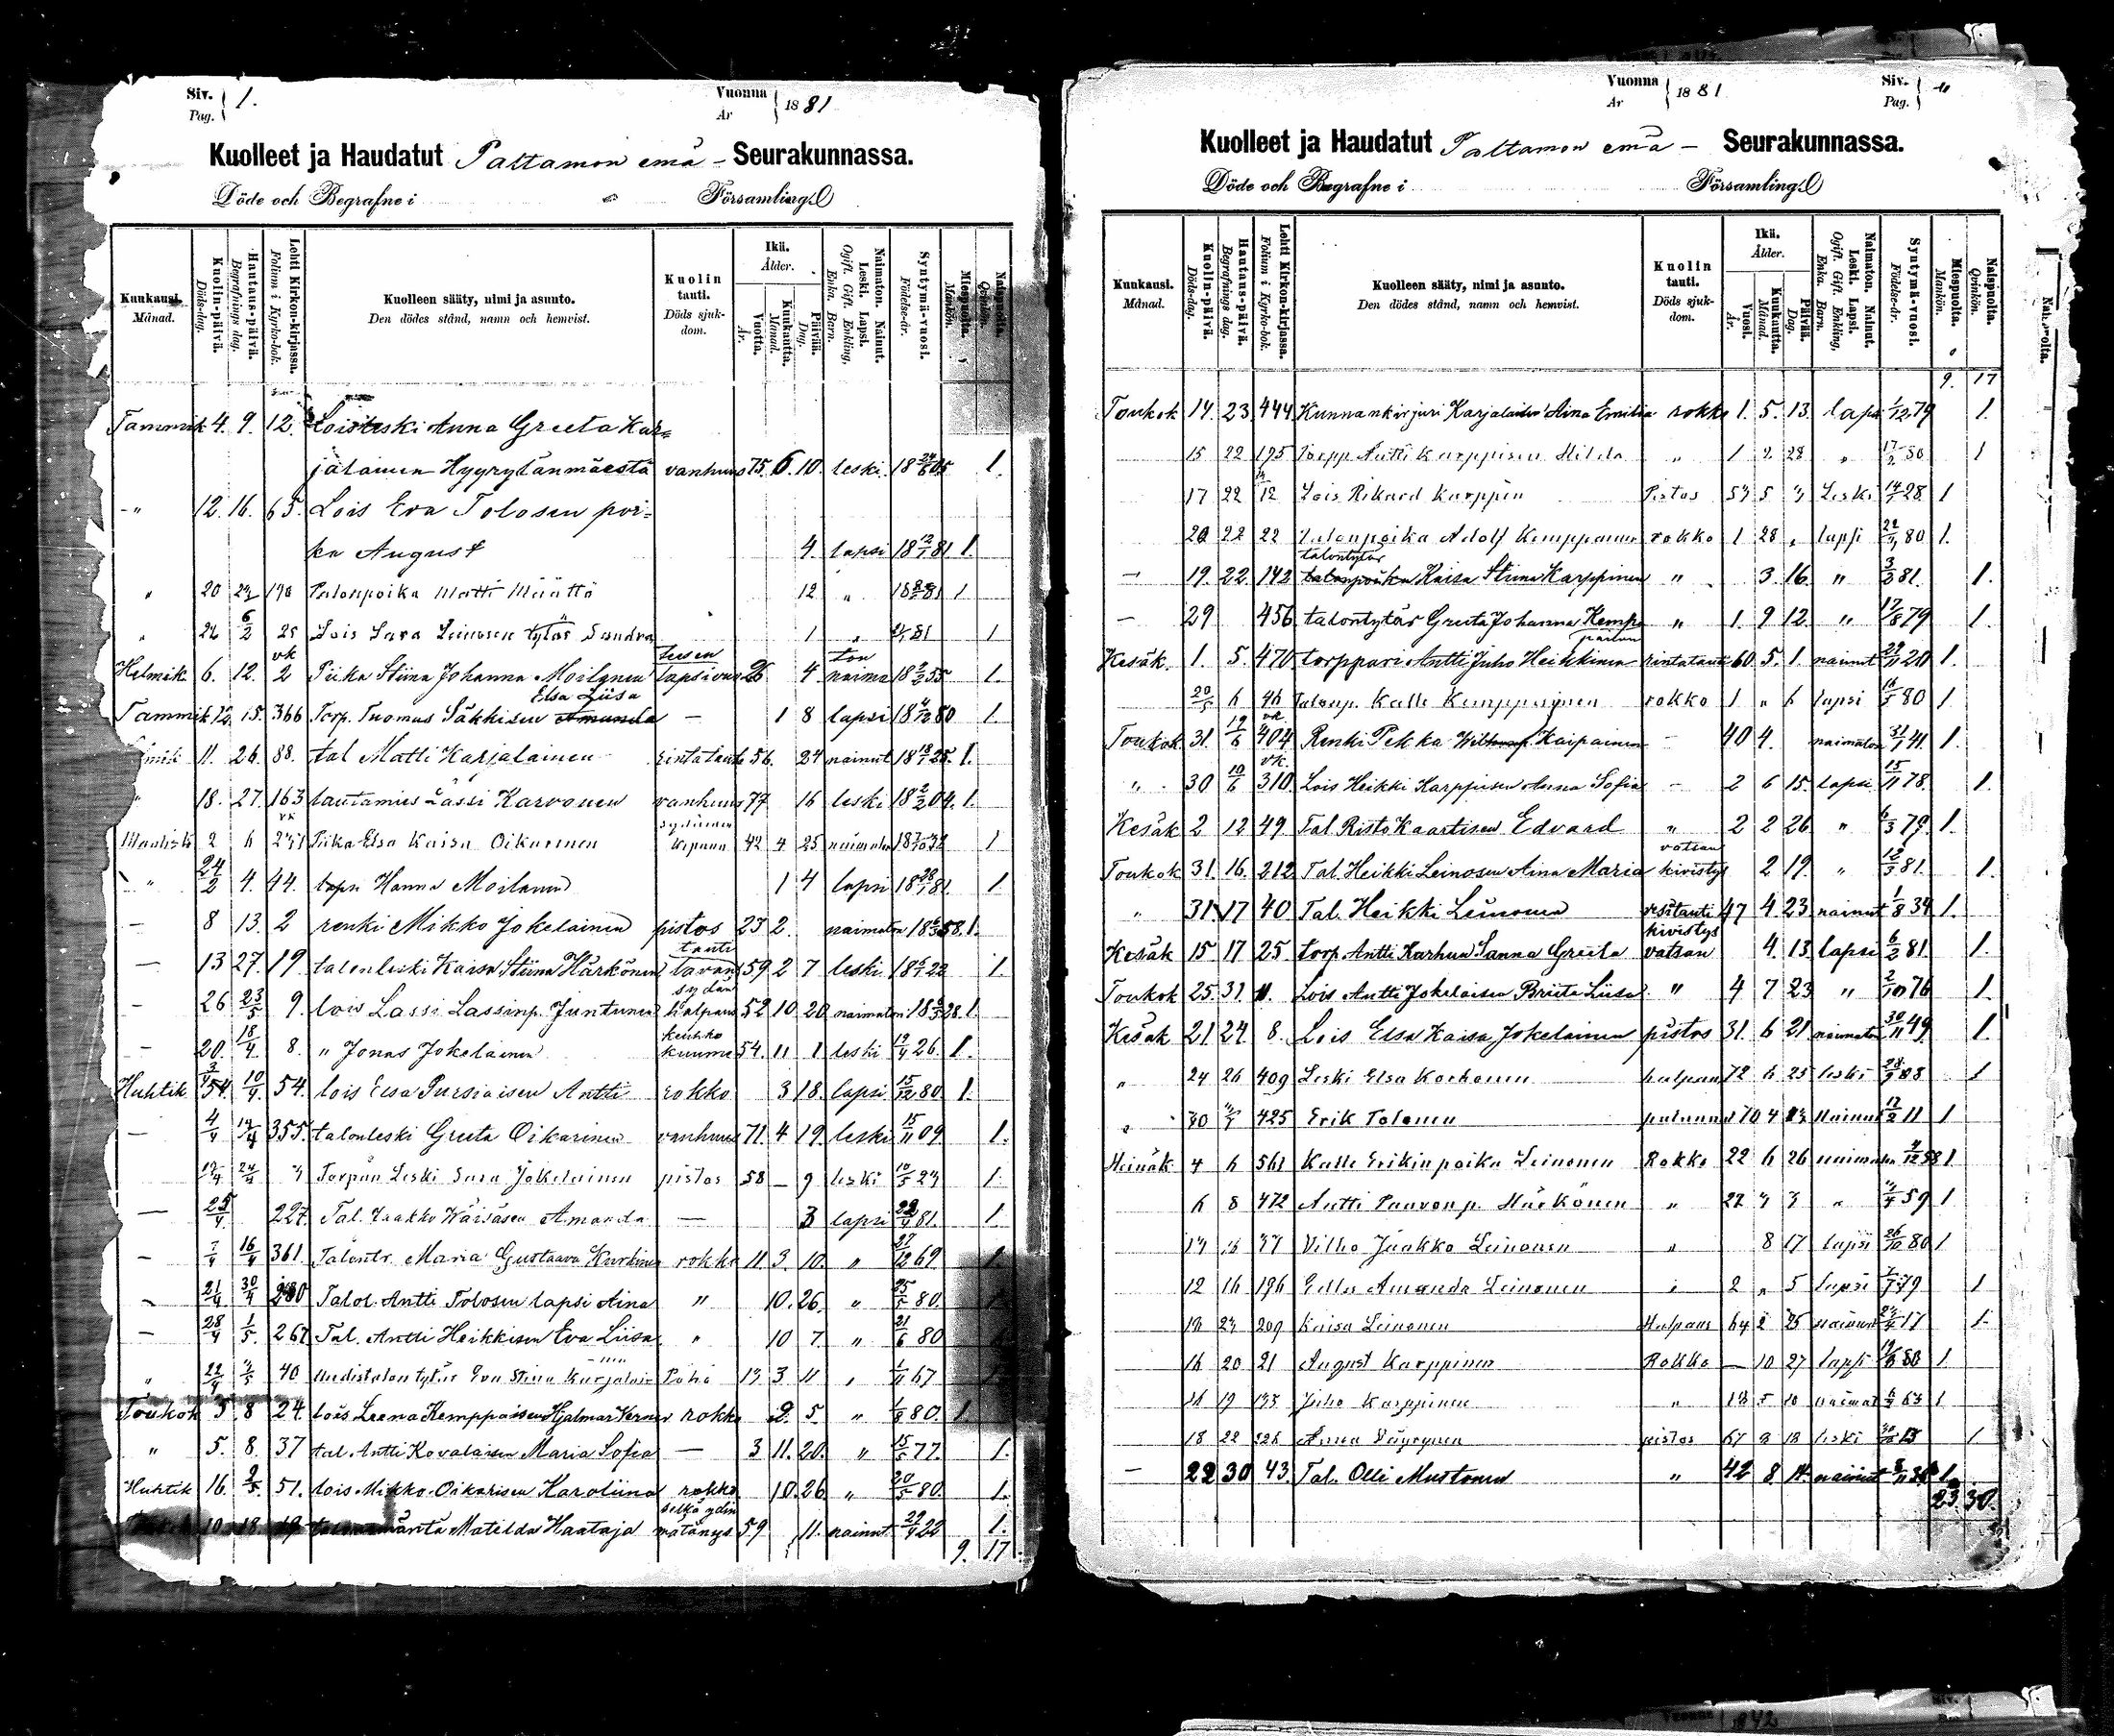 Siv. Pag. 1.
Vuonna År 1881
Kuolleet ja Haudatut Paltamon emä - Seurakunnassa.
Döde och Begrafne i Församling.
Kuukausi. Månad.
Kuolin-päivä. Döds-dag.
Hautaus-päivä. Begrafnings dag.
Lehti Kirkon-kirjassa. Folium i Kyrko-bok.
Kuolleen sääty, nimi ja asunto. Den dödes stånd, namn och hemvist.
Kuolin tauti. Döds sjukdom.
Ikä. Ålder.
Vuotta. År.
Kuukautta. Månad.
Päivää. Dag.
Naimaton. Nainut. Leski. Lapsi. Ogift. Gift. Enkling, Enka. Barn.
Syntymä-vuosi. Födelse-år.
Miespuolta. Mankön.
Naispuolta. Qvinkön.
Tammik 4. 9. 12. Loisleski Anna Greeta Kar=
jalainen Hyyrylänmäestä vanhuus 75. 6. 10. leski 18 24/6 05 1.
" 12. 16. 65. Lois Eva Tolosen poi=
ka August 4. lapsi 1881 1.
" 20 Talonpoika Matti Määttä 12 " 1
" 22 6/2 25 Lois Sara Leinosen tytär Sandra 1 " 1
Helmik 6. 12. vk 2 Piika Stiina Johanna Moilanen lapsivuo teesen 26 4. naima ton 18 2/2 55 1.
Tammik 15. 366 Torp. Tuomas Säkkisen Amanda Elsa Liisa — 1 8 lapsi 80 1.
11. 26. 88. tal Matti Karjalainen rintatauti 56. 24 nainut 18 18/1 25. 1.
" 18. 27. 163 lautamies Lassi Karvonen vanhuus 77 16 leski 18 2/2 04. 1.
Maalisk 2 6 vk Piika Elsa Kaisa Oikarinen sydämen kipuna 42 4 25 naimaton 1
" 24/2 4. 44. Hanna Moilanen 1 4 lapsi 81. 1.
— 8 13. 2 renki Mikko Jokelainen pistos 23 2. naimaton 58. 1.
— 13 27. 19. talonleski Kaisa Stiina Härkönen tauti 59 2 7 leski 22 1
- 26 23/5 9. lois Lassi Lassinp. Juntunen sydän halpaus 52 10. 20 naimaton 28. 1.
- 20. 18/4 8. " Jonas Jokelainen keuhko kuume 54. 11 1 leski 19/4 26. 1.
Huhtik 10/4 54. lois Elsa Pursiaisen Antti rokko 3 18. lapsi 15/12 80. 1.
— 4/4 14/4 355. talonleski Greeta Oikarinen vanhuus 71. 4 19. leski 15/11 09. 1.
17/4 24/4 Torpan Leski Sara Jokelainen pistos 58 — 9 leski 1.
— 25/4 227. Tal. Jaakko Väisäsen Amanda — 3 lapsi 22/4 81. 1.
- 7/4 16/4 361. Talontr. Maria Gustaava Kurkinen rokko 11. 3. 10. " 27/12 69. 1.
- 21/4 30/4 280 Talol. Antti Tolosen lapsi Aina " 10. 26. " 25/5 80. 1
— 28/4 1/5. 267 Tal. Antti Heikkisen Eva Liisa " 10 7. " 21/6 80
" 22/4 40 Uudistalon tytär Eva Stiina Karjalai- nen 13 3 11 67
Toukok 5 8 24. lois Leena Kemppaisen Hjalmar Verner rokko 2. 5. " 80. 1.
" 5. 8. 37 tal. Antti Kovalaisen Maria Sofia — 3 11. 20. " 15/5 77. 1.
Huhtik 16. 2/5. 51. lois Mikko Oikarisen Karoliina rokko 10. 26 " 20/5 80. 1.
10 18. 19 Matilda Haataja selkä ydin mätänys 59 11. nainut 29/4 22 1.
9. 17.
Siv. Pag.
Vuonna År 1881
Kuolleet ja Haudatut Paltamon emä - Seurakunnassa.
Döde och Begrafne i Församling.
Kuukausi. Månad.
Kuolin-päivä. Döds-dag.
Hautaus-päivä. Begrafnings dag.
Lehti Kirkon-kirjassa. Folium i Kyrko-bok.
Kuolleen sääty, nimi ja asunto. Den dödes stånd, namn och hemvist.
Kuolin tauti. Döds sjukdom.
Ikä. Ålder.
Vuosi. År.
Kuukautta. Månad.
Päivää. Dag.
Naimaton. Nainut. Leski. Lapsi. Ogift. Gift. Enkling, Enka. Barn.
Syntymä-vuosi. Födelse-år.
Miespuolta. Mankön.
Naispuolta. Qvinkön.
9. 17
Toukok 14. 23. 444 Kunnankirjuri Karjalaisen Aina Emilia rokko 1. 5. 13. lapsi 1/12 79 1.
15 22 195 Torpp. Antti Karppisen Hilda " 1 2 28 " 17/2 80 1
17 22 12 Lois Rikard Karppinen Pistos 53 5 3 Leski 14/ 28. 1
20 22 22 Talonpoika Adolf Kemppainen rokko 1 28 " lapsi 22/4 80 1.
— 19. 22. 142 talontytär talonpoika Kaisa Stiina Karppinen " 3 16. " 3/3 81. 1.
— 29 456 talontytär Greeta Johanna Kemp- painen " 1. 9 12. " 17/8 79 1.
Kesäk. 1. 5. 470 torppari Antti Juho Heikkinen rintatauti 60. 5. 1. nainut 20 1.
20/5 6 46 Talonp. Kalle Kemppainen rokko 1 " 6 lapsi 80 1.
Toukok 31. 19/6 vk 404 Renki Pekka Kaipainen — 40 4. naimaton 31/1 41 1.
" 30 10/6 vk. 310. Lois Heikki Karppisen Anna Sofia — 2 6 15. lapsi 15/11 78. 1.
Kesäk 2 12 49 Tal. Risto Kaartisen Edvard " 2 2 26 " 6/3 79 1.
Toukok 31. 16. 212 Tal. Heikki Leinosen Aina Maria vatsan kivistys 2 19. " 12/3 81. 1.
" 31 17 40 Tal. Heikki Leinonen vesitauti 47 4 23 nainut 1/8 34 1.
Kesäk 15. 17 25 torp. Antti Karhun Sanna Greeta kivistys vatsan 4. 13. lapsi 6/2 81 1.
Toukok 25. 31. 11. Lois Antti Jokelaisen Briita Liisa " 4 7 23 " 2/10 76 1.
Kesäk 21 24. 8. Lois Elsa Kaisa Jokelainen pistos 31. 6 21 naimaton 30/11 49 1.
" 24 26 409 Leski Elsa Korhonen halpaus 72 6 25 leski 08 1
" 30 425 Erik Tolonen 70 4 nainut 11 1
Heinäk 4 6 561 Kalle Erikinpoika Leinonen Rokko 22 6 26 naimaton 58 1
6 8 472 Antti Paavonp. Härkönen " 22 3 3 " 59 1
37 Vilho Jaakko Leinonen " 8 17 lapsi 26/10 80 1
12 16 196 Amanda Leinonen " 2 " 5 lapsi 79 1
209 Kaisa Leinonen Halpaus 64 2 25 nainut 17 1.
16 20 21 August Karppinen Rokko — 10 27 lapsi 80 1.
16 19 Juho Karppinen " 5 10 63 1.
18 22 Anna Väyrynen pistos 67 leski 1
— 22 30 43. Tal. Olli Mustonen " 42 8 14. nainut 1
23 30.